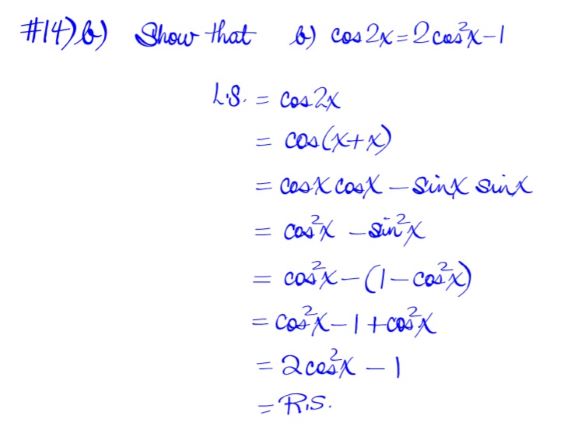 #14) b) Show that b) cos2x = 2cos²x - 1
L.S. = cos2x
= cos(x+x)
= cosx cosx - sinx sinx
= cos²x - sin²x
= cos²x - (1 - cos²x)
= cos²x - 1 + cos²x
= 2cos²x - 1
= R.S.